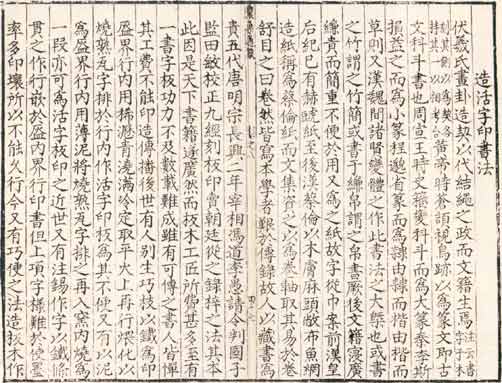 造活字印書法
伏羲氏畫卦造契以代結繩之政而文籍生焉注云書字于木
刻其側以為契各持其一以相考合黃帝時蒼頡視鳥跡以為篆文即古
文科斗書也周宣王時史籀變科斗而為大篆秦李斯
損益之而為小篆程邈省篆而為隸由隸而楷由楷而
草則又漢魏間諸賢變體之作此書法之大槩也或書
之竹謂之竹簡或書于縑帛謂之帛書厥後文籍寖廣
縑貴而簡重不便於用又為之紙故字從巾案前漢皇
后紀已有赫蹏紙至後漢蔡倫以木膚麻頭敝布魚網
造紙稱為蔡倫紙而文集資之以為卷軸取其易於卷
舒目之曰卷然皆寫本學者艱於傳錄故人以藏書為
貴五代唐明宗長興二年宰相馮道李愚請令判國子
監田敏校正九經刻板印賣朝廷從之錄梓之法其本
此因是天下書籍遂廣然而板木工匠所費甚多至有
一書字板功力不及數載難成雖有可傳之書人皆憚
其工費不能印造傳播後世有人別生巧技以鐵為印
盔界行內用稀瀝青澆滿冷定取平火上再行煨化以
燒熟瓦字排於行內作活字印板為其不便又有以泥
為盔界行內用薄泥將燒熟瓦字排之再入窯內燒為
一段亦可為活字板印之近世又有注錫作字以鐵條
貫之作行嵌於盔內界行印書但上項字樣難於使墨
率多印壞所以不能久行今又有巧便之法造板木作